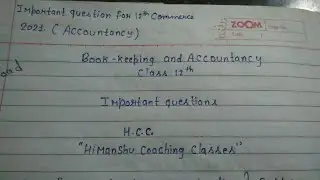 Important question for 12th Commerce
2021 (Accountancy)
ZOOM
Book-keeping and Accountancy
Class 12th
Important questions
H.C.C.
"Himanshu Coaching Classes"